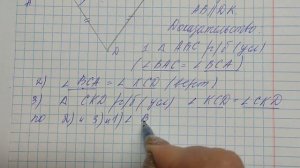 A
AB || DK
D
Доказательство
1 Δ ABC р/б (усл)
(∠BAC = ∠BCA)
2) ∠BCA = ∠KCD (верт)
3) Δ CKD р/б (усл) ∠KCD = ∠CKD
по 2) и 3) и 1) ∠B